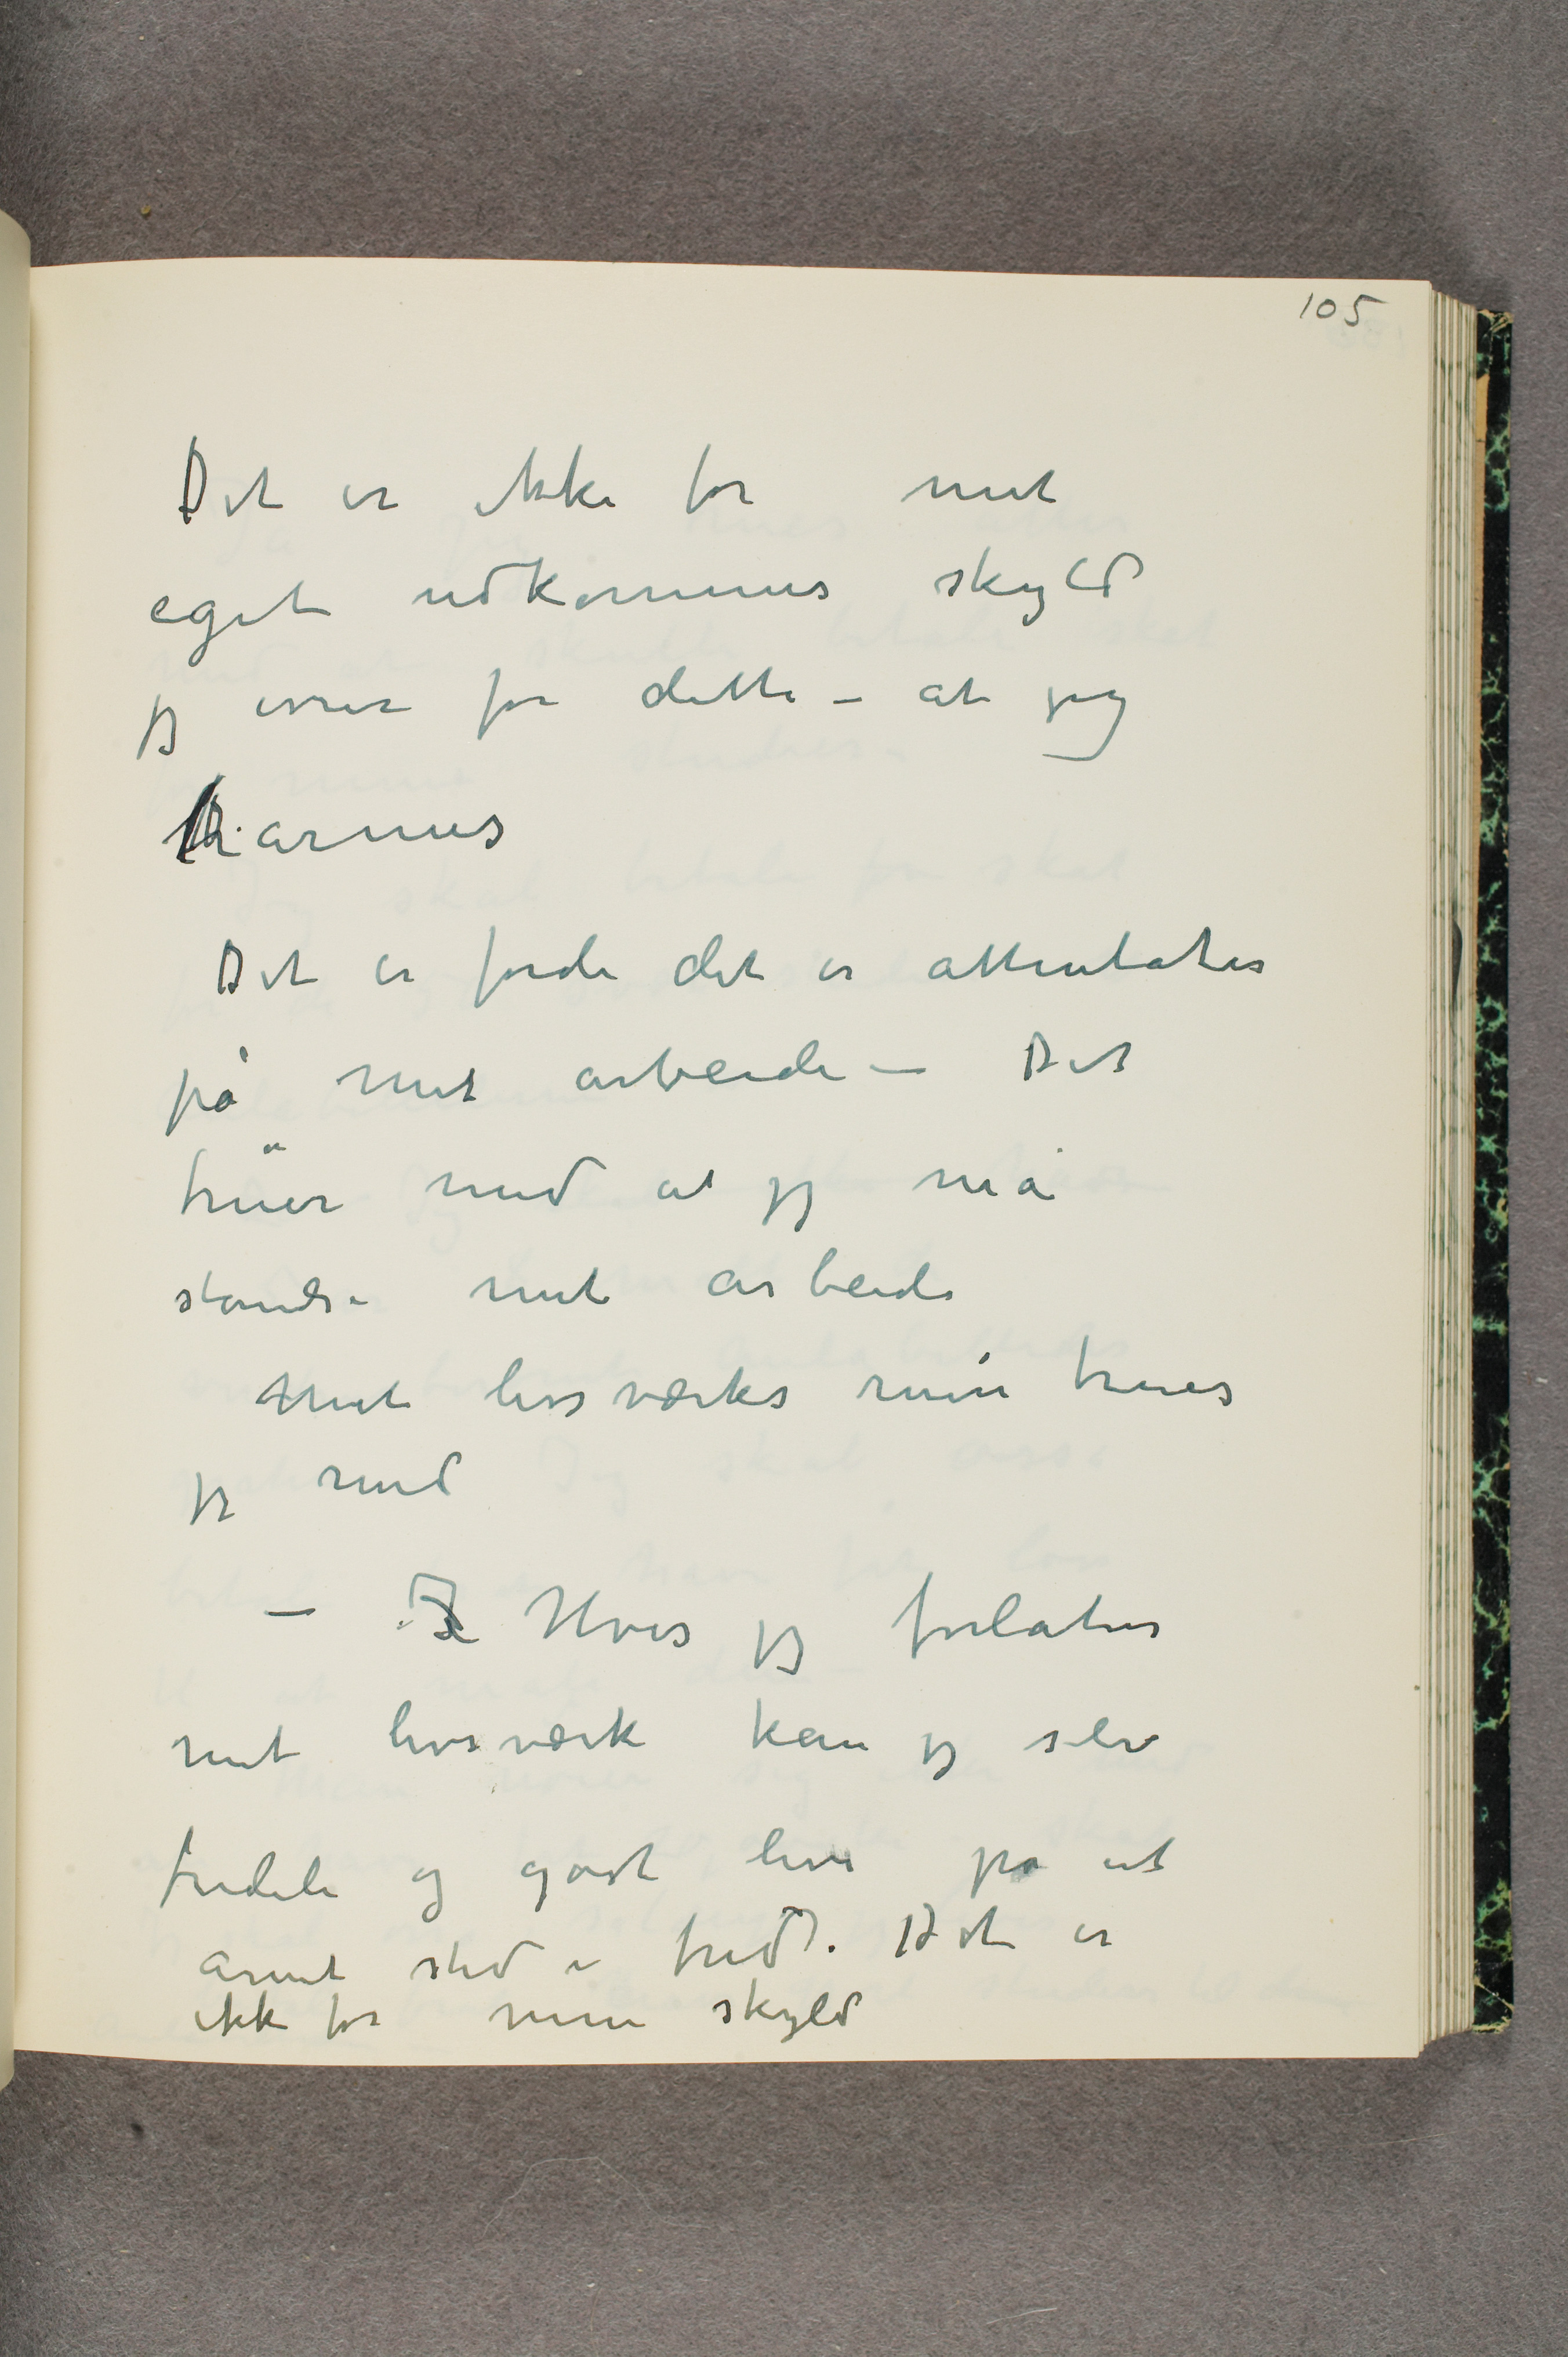 105
Det er ikke for mit
eget udkommes skyld
jeg ivrer for dette – at jeg
harmes
Det er fordi det er attentater
på mit arbeide – Det
truer med at jeg må
standse mit arbeide
Mit livsværks ruin trues
jeg med
– Hvis jeg forlater
mit livsværk kan jeg selv
fredeli og godt leve på et
annet sted i fred. Det er
ikke for min skyld